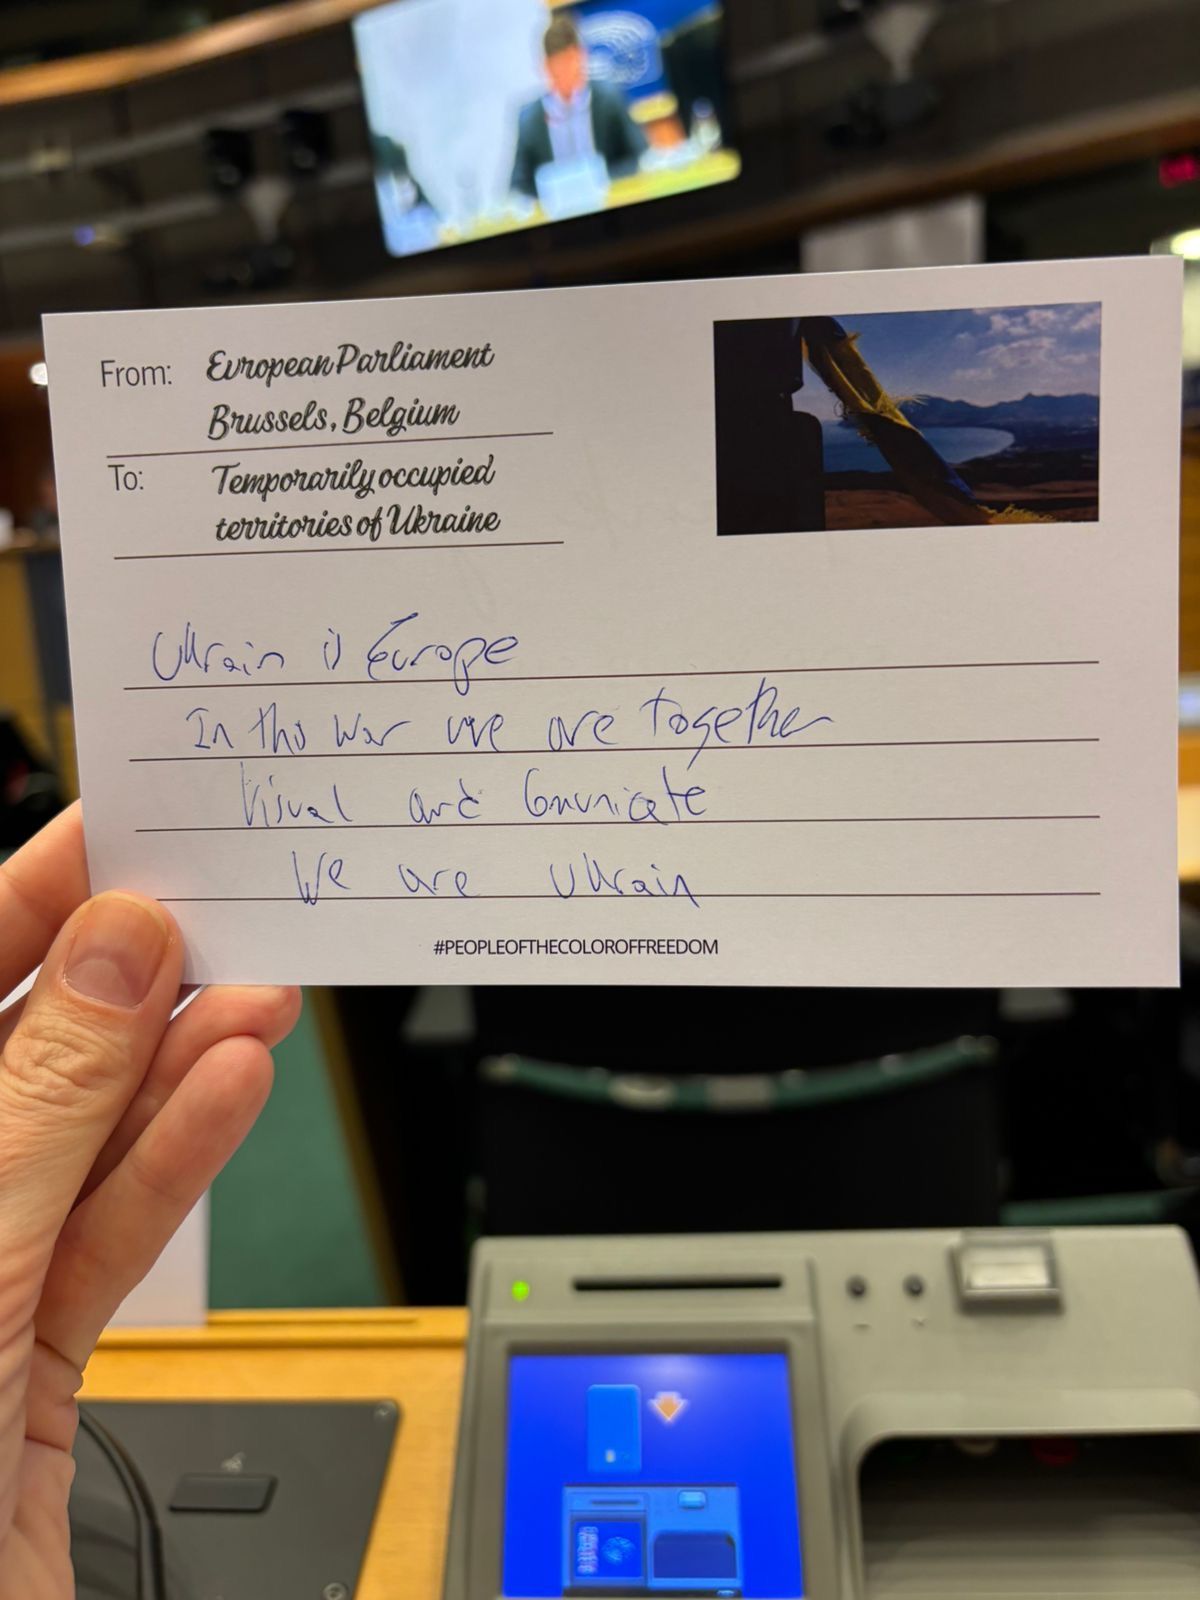 From: European Parliament
Brussels, Belgium
To: Temporarily occupied
territories of Ukraine
Ukrain is Europe
In this war we are together
Visual and Comunicate
We are Ukrain
#PEOPLEOFTHECOLOROFFREEDOM